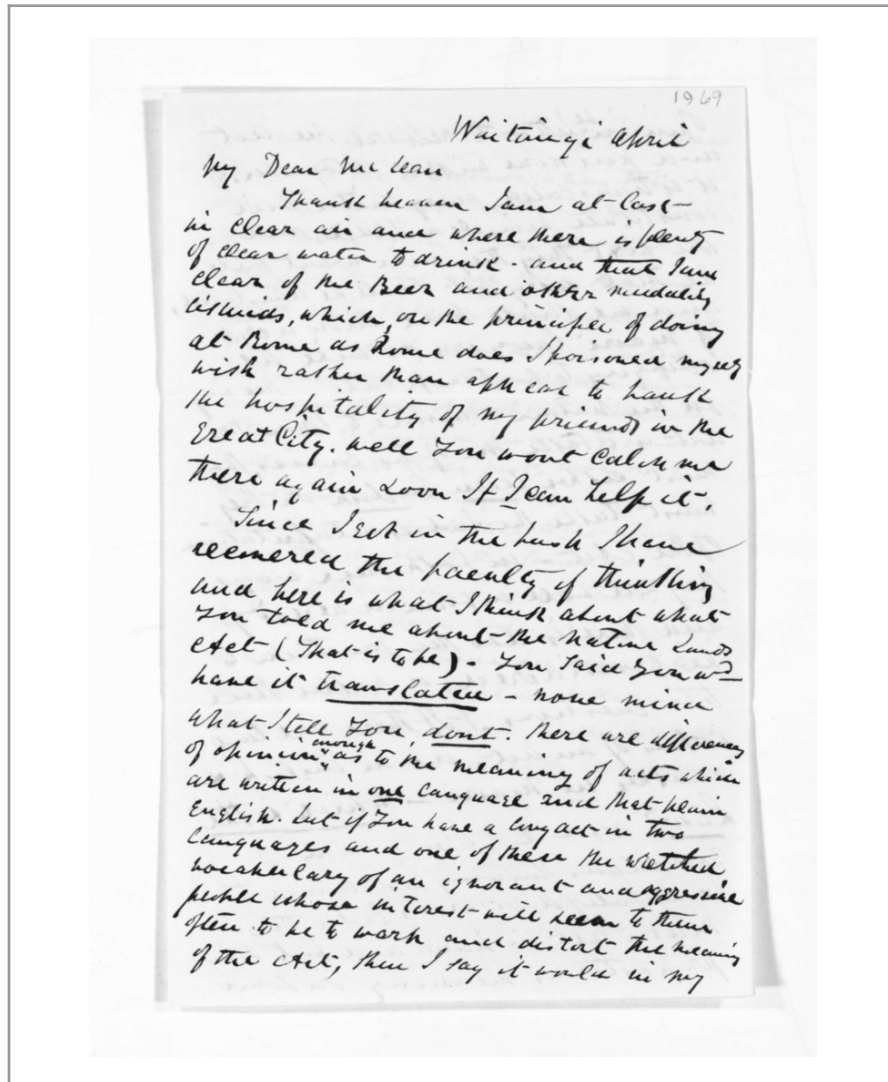 1869
Waitangi April
My Dear McLean
Thank heaven I am at last
in clear air and where there is plenty
of clear water to drink - and that I am
clear of the Beer and other
which, on the principle of doing
at Rome as Rome does I poisoned myself
with rather than appear to
the hospitality of my friends in the
Great City. well You wont catch me
there again soon If I can help it.
Since I got in the bush I have
recovered the faculty of thinking
and here is what I think about what
You told me about the Native Lands
Act (That is to be). You said You wd
have it translated - now mind
what I tell You, dont. there are differences
of opinion enough as to the meaning of acts which
are written in one language and that plain
English. but if You have a long act in two
languages and one of these the wretched
vocabulary of an ignorant and aggressive
people whose interest will seem to them
often to be to warp and distort the meaning
of the Act, then I say it would in my